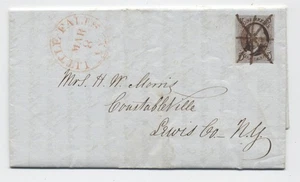 LITTLE FALLS
MAR
8
Mrs. H. W. Morris
Constableville
Lewis Co - N.Y.